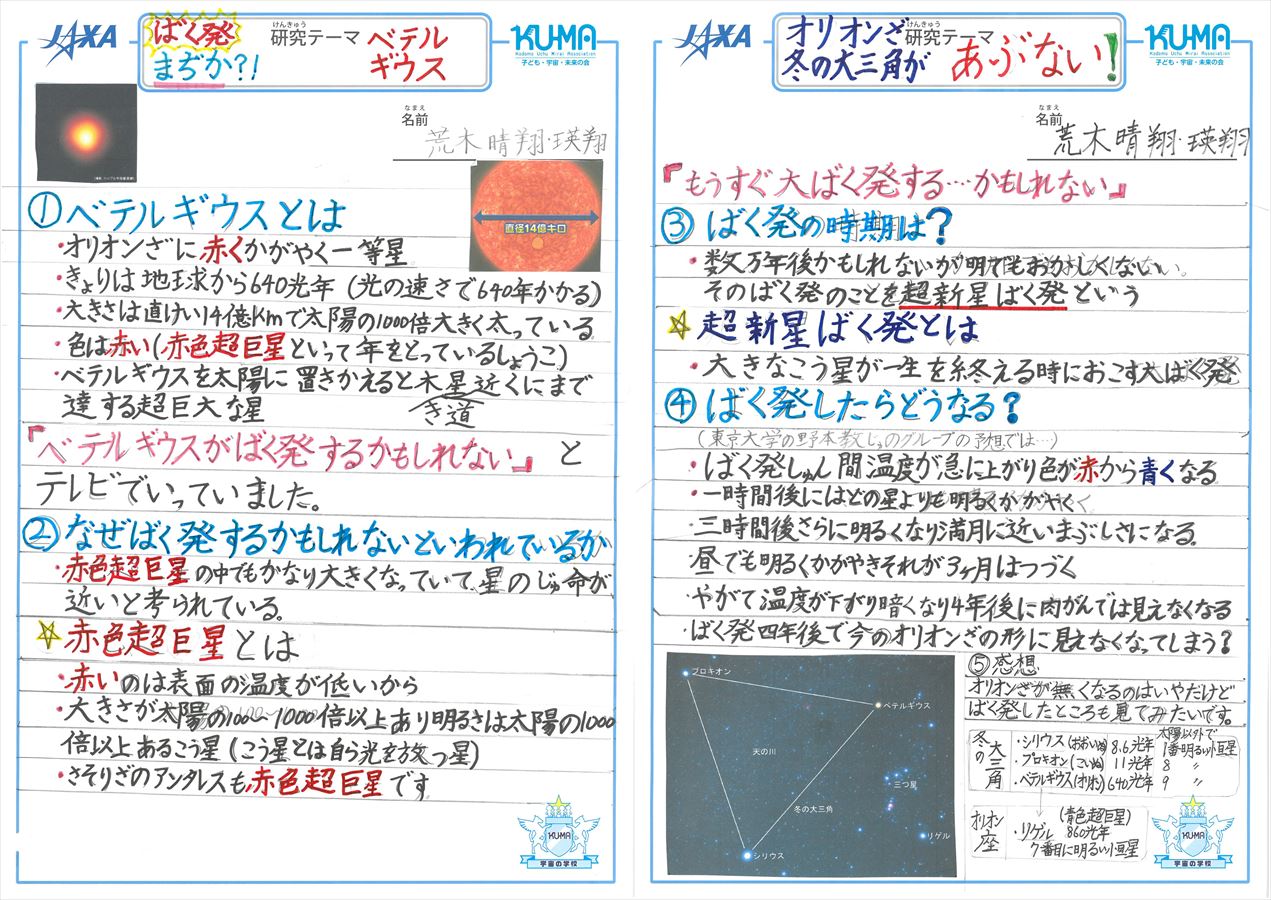 JAXA
ばく発
まぢか?!
けんきゅう
研究テーマ
ベテル
ギウス
KUMA
Kodomo Uchu Mirai Association
子ども・宇宙・未来の会
なまえ
名前
荒木晴翔・瑛翔
直径14億キロ
①ベテルギウスとは
・オリオンざに赤くかがやく一等星
・きょりは地球から640光年(光の速さで640年かかる)
・大きさは直けい14億Kmで太陽の1000倍大きく太っている
・色は赤い(赤色超巨星といって年をとっているしょうこ)
・ベテルギウスを太陽に置きかえると木星近くにまで
き道
達する超巨大な星
『ベテルギウスがばく発するかもしれない』と
テレビでいっていました。
②なぜばく発するかもしれないといわれているか
・赤色超巨星の中でもかなり大きくなっていて、星のじゅ命が
近いと考られている。
☆赤色超巨星とは
・赤いのは表面の温度が低いから
・大きさが太陽の100〜1000倍以上あり明るさは太陽の1000
倍以上あるこう星(こう星とは自ら光を放つ星)
・さそりざのアンタレスも赤色超巨星です
KUMA
宇宙の学校
JAXA
オリオンざ
冬の大三角が
けんきゅう
研究テーマ
あぶない!
KUMA
Kodomo Uchu Mirai Association
子ども・宇宙・未来の会
なまえ
名前
荒木晴翔・瑛翔
『もうすぐ大ばく発する…かもしれない』
③ばく発の時期は?
・数万年後かもしれないが明日でもおかしくない。
そのばく発のことを超新星ばく発という
☆超新星ばく発とは
・大きなこう星が一生を終える時におこす大ばく発
④ばく発したらどうなる?
(東京大学の野本教じゅのグループの予想では…)
・ばく発しゅん間温度が急に上がり色が赤から青くなる
・一時間後にはどの星よりも明るくかがやく
・三時間後さらに明るくなり満月に近いまぶしさになる。
・昼でも明るくかがやきそれが3ヶ月はつづく
・やがて温度が下がり暗くなり4年後に肉がんでは見えなくなる
・ばく発四年後で今のオリオンざの形に見えなくなってしまう?
プロキオン
ベテルギウス
天の川
三つ星
冬の大三角
リゲル
シリウス
⑤感想
オリオンざが無くなるのはいやだけど
ばく発したところも見てみたいです。
冬の大三角
太陽以外で
・シリウス(おおいぬ) 8.6光年 1番明るい恒星
・プロキオン(こいぬ) 11光年 8 〃
・ベテルギウス(オリオン) 640光年 9 〃
オリオン座
(青色超巨星)
・リゲル 860光年
7番目に明るい恒星
KUMA
宇宙の学校